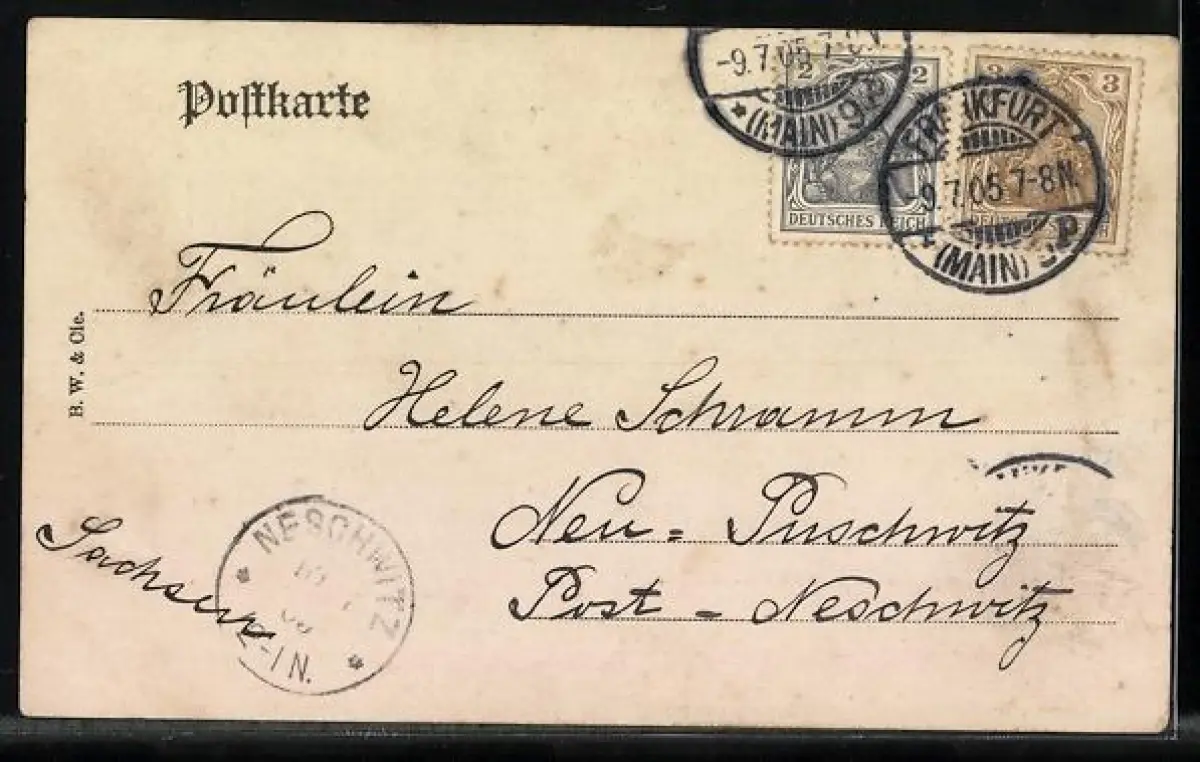 Postkarte
-9.7.05 7-8N.
*(MAIN) 9.P
2 2
DEUTSCHES REICH
3 3
DEUTSCHES REICH
FRANKFURT
-9.7.05 7-8N.
*(MAIN) 9.P
B. W. & Cie.
Fräulein
Helene Schramm
Neu = Puschwitz
Post = Neschwitz
Sachsen
NESCHWITZ